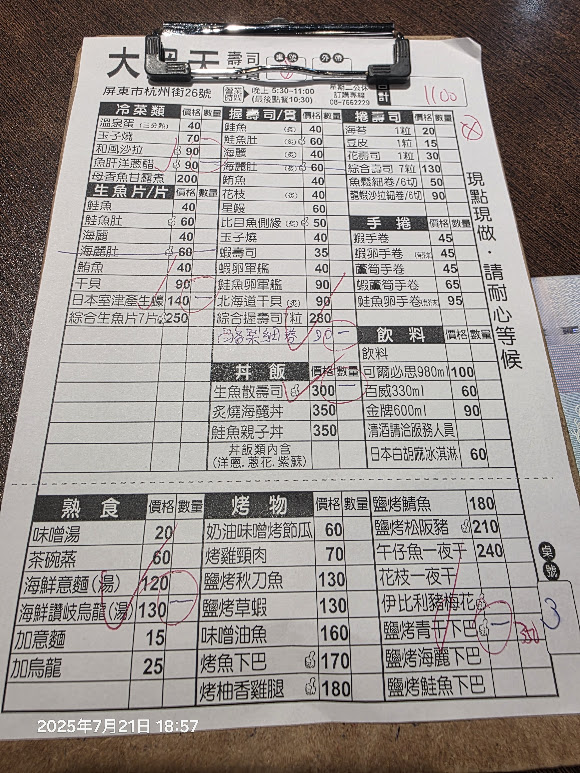 壽司
屏東市杭州街26號
營業時段
晚上 5:30~11:00
(最後點餐10:30)
星期二公休
訂購專線
08-7662229
合計
1100
現點現做‧請耐心等候
冷菜類 價格 數量
溫泉蛋(三分熟) 40
玉子燒 70
和風沙拉 90
魚肝洋蔥醋 90
母香魚甘露煮 200
生魚片/片 價格 數量
鮭魚 40
鮭魚肚 60
海鱺 40
海鱺肚 60
鮪魚 40
干貝 90
日本室津產生蠔 140 一
綜合生魚片7片 250
握壽司/貫 價格 數量
鮭魚 (炙) 40
鮭魚肚 (炙) 60
海鱺 (炙) 40
海鱺肚 (炙) 60
鮪魚 40
花枝 (炙) 40
星鰻 60
比目魚側緣 (炙) 50
玉子燒 40
蝦壽司 35
蝦卵軍艦 40
鮭魚卵軍艦 90
北海道干貝 (炙) 90
綜合握壽司7粒 280
90 一
丼飯 價格 數量
生魚散壽司 300 一
炙燒海鱺丼 350
鮭魚親子丼 350
丼飯類內含
(洋蔥、蔥花、紫蘇)
捲壽司 價格 數量
海苔 1粒 20
豆皮 1粒 15
花壽司 1粒 30
綜合壽司 7粒 130
魚鬆細卷/6切 50
龍蝦沙拉細卷/6切 90
手捲 價格 數量
蝦手卷 45
蝦卵手卷 45
蘆筍手卷 45
蝦蘆筍手卷 65
鮭魚卵手卷 95
飲料 價格 數量
飲料
可爾必思980ml 100
百威330ml 60
金牌600ml 90
清酒請洽服務人員
日本白胡麻冰淇淋 60
熟食 價格 數量
味噌湯 20
茶碗蒸 60
海鮮意麵(湯) 120
海鮮讚岐烏龍(湯) 130 一
加意麵 15
加烏龍 25
烤物 價格 數量
奶油味噌烤節瓜 60
烤雞頸肉 70
鹽烤秋刀魚 130
鹽烤草蝦 130
味噌油魚 160
烤魚下巴 170
烤柚香雞腿 180
鹽烤鯖魚 180
鹽烤松阪豬 210
午仔魚一夜干 240
花枝一夜干
伊比利豬梅花
鹽烤青干下巴 一 350
鹽烤海鱺下巴
鹽烤鮭魚下巴
桌號
3
2025年7月21日 18:57